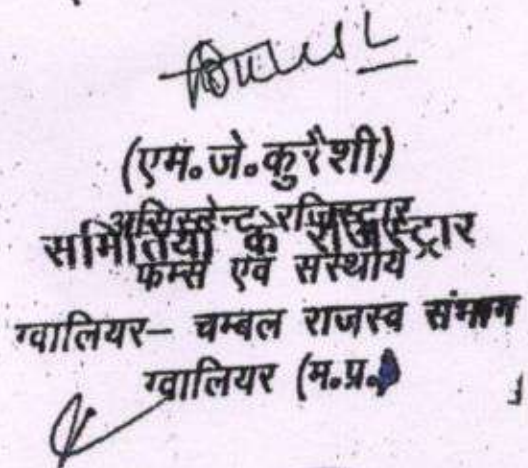 (एम.जे.कुरैशी)
असिस्टेन्ट रजिस्ट्रार
समितियों के रजिस्ट्रार
फर्म्स एवं संस्थायें
ग्वालियर- चम्बल राजस्व संभाग
ग्वालियर (म.प्र.)